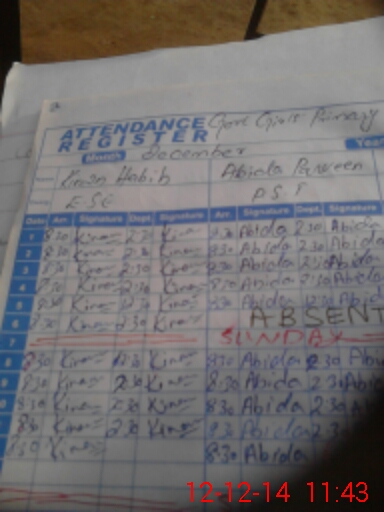 ATTENDANCE REGISTER Govt Girls Primary
Year
Month December
Kiran Habib Abida Parveen
E.S.E P.S.T
Date Arr. Signature Dept. Signature Arr. Signature Dept. Signature
1 8:30 Kiran 2:30 Kiran 8:30 Abida 2:30 Abida
2 8:30 Kiran 2:30 Kiran 8:30 Abida 2:30 Abida
3 8:30 Kiran 2:30 Kiran 8:30 Abida 2:30 Abida
4 8:30 Kiran 2:30 Kiran 8:30 Abida 2:30 Abida
5 8:30 Kiran 2:30 Kiran 8:30 Abida 2:30 Abida
6 8:30 Kiran 2:30 Kiran ABSENT
7 SUNDAY
8 8:30 Kiran 2:30 Kiran 8:30 Abida 2:30 Abida
8:30 Kiran 2:30 Kiran 8:30 Abida 2:30 Abida
8:30 Kiran 2:30 Kiran 8:30 Abida 2:30 Abida
8:30 Kiran 2:30 Kiran 8:30 Abida 2:30
8:30 Kiran 8:30 Abida
12-12-14 11:43